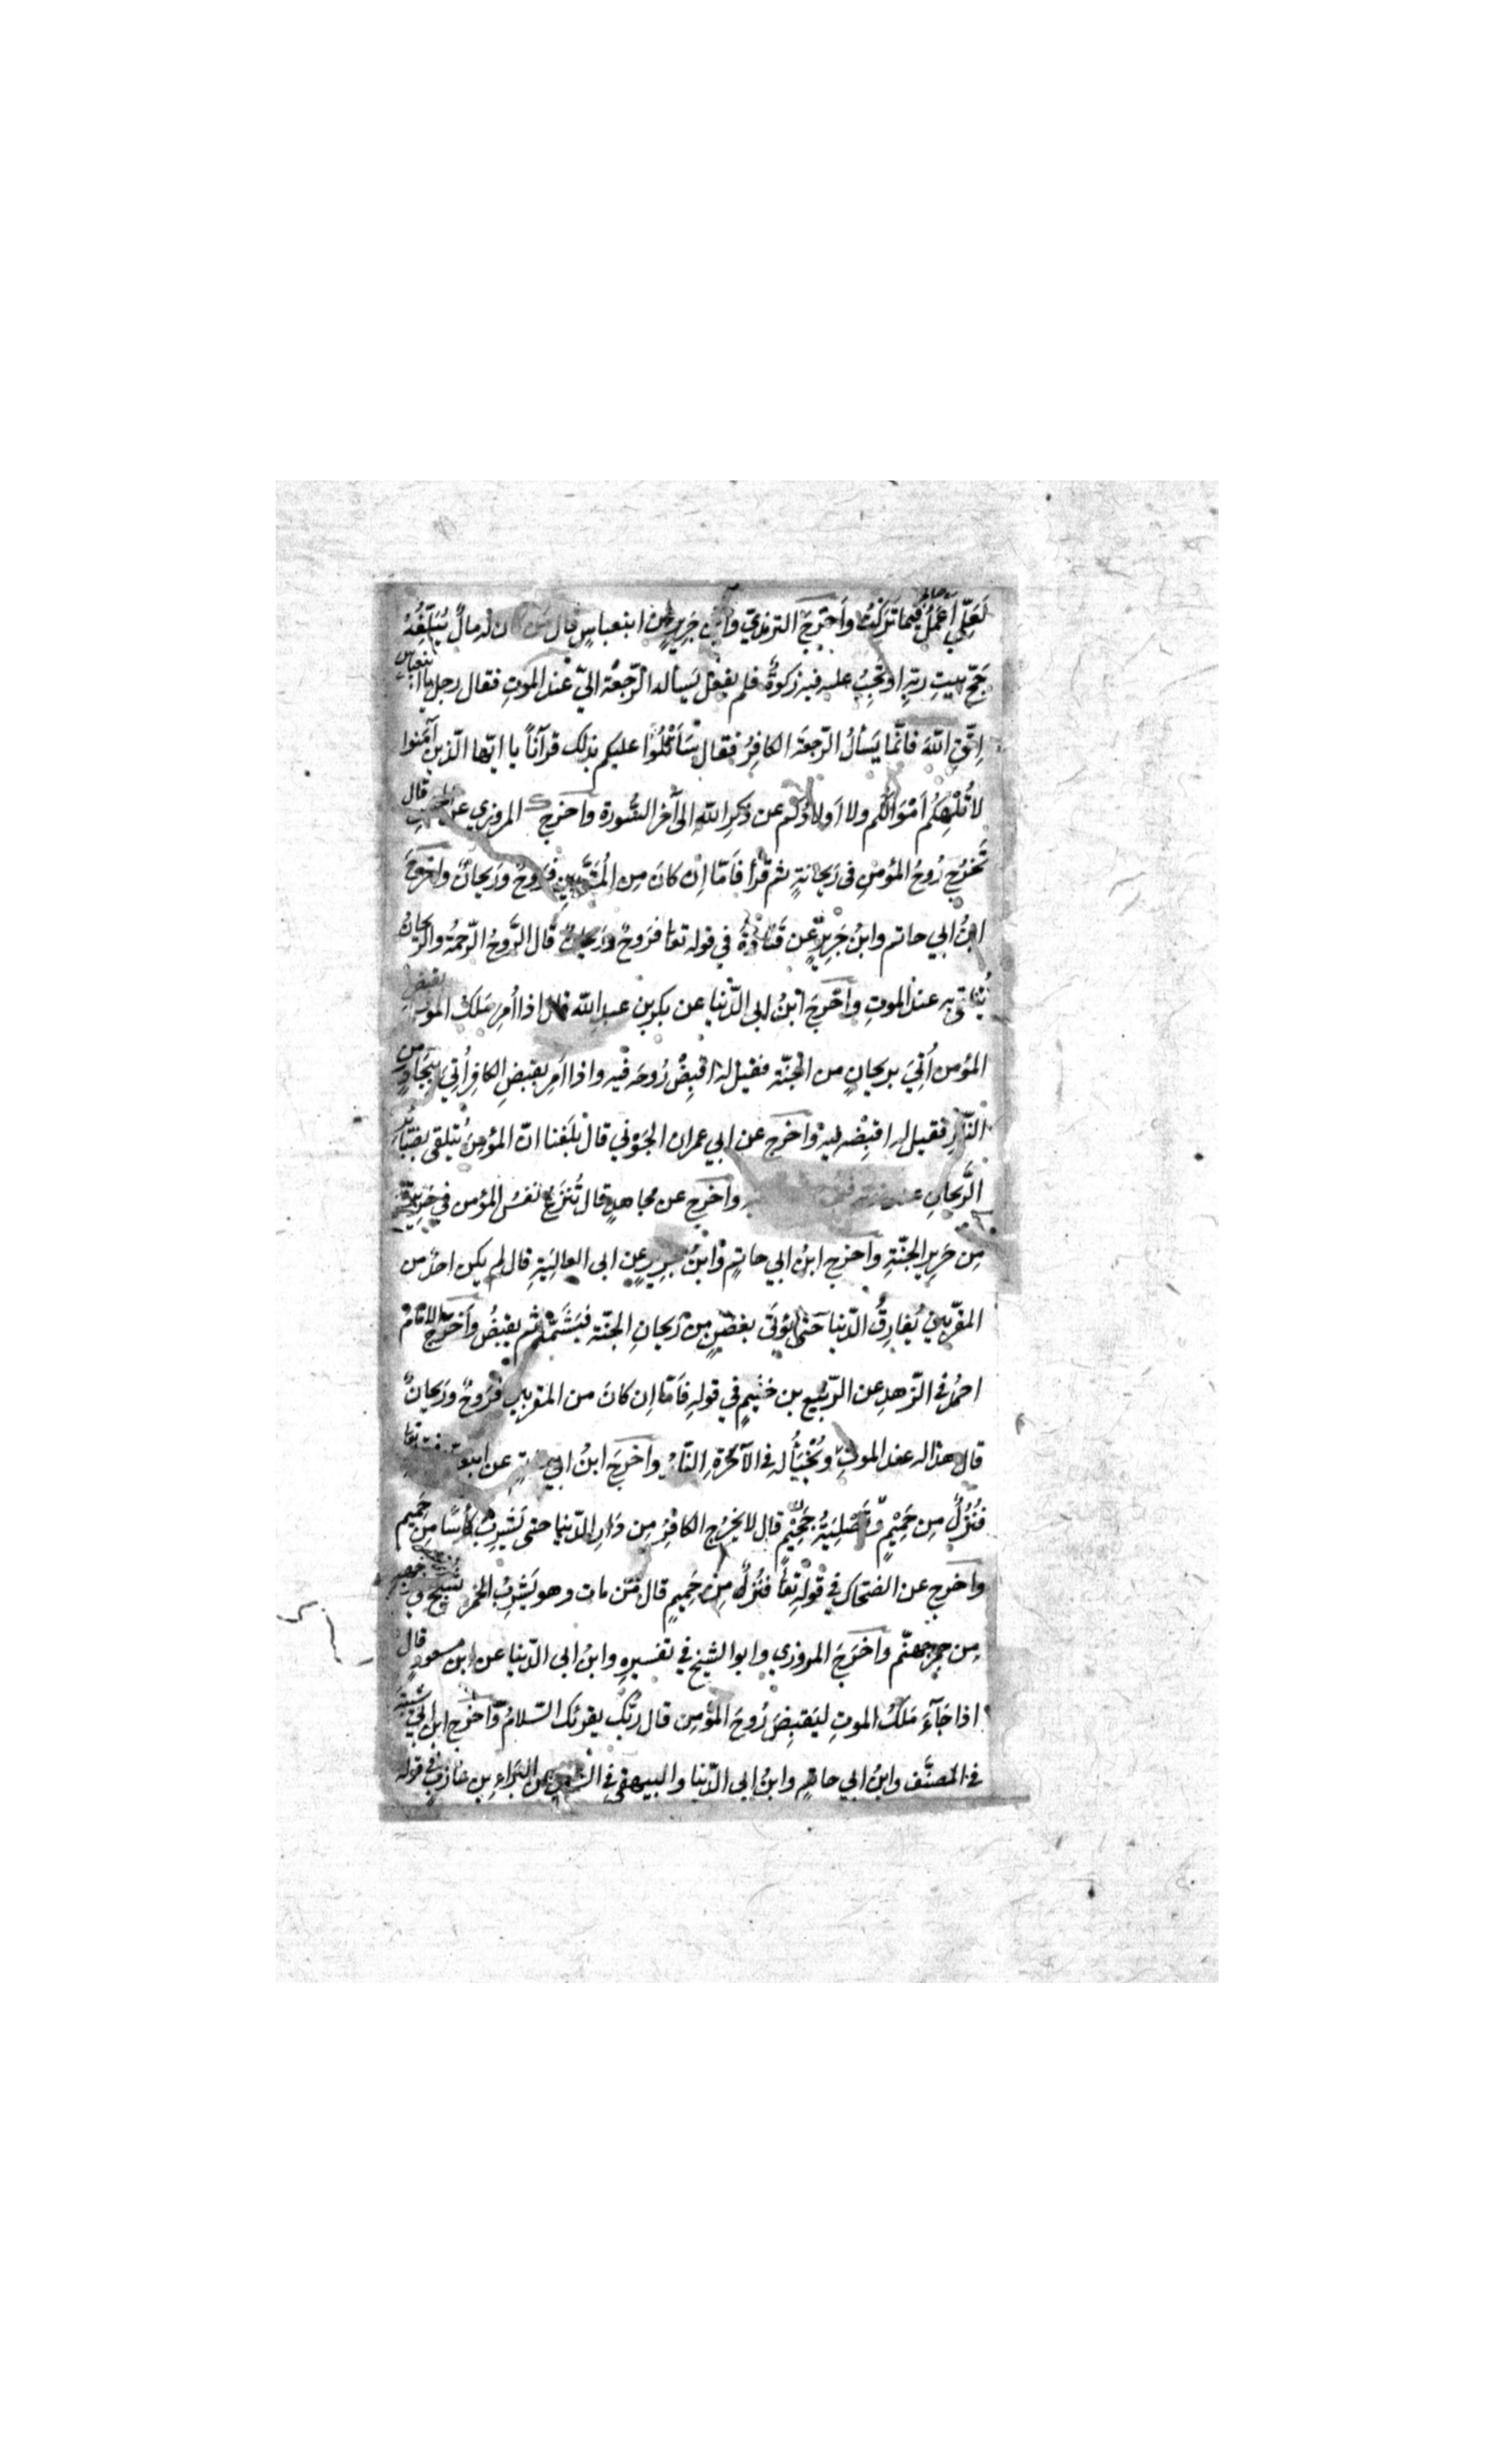 لَعَلِّي أَعْمَلُ صالحا فيما تَرَكْتُ وأَخرَجَ الترمذيّ وابن جَرِيرٍ عن ابنعباسٍ قال مَن كان لَه مالٌ يُبَلِّغُهُ
حَجَّ بيتِ ربّهِ او تَجِبُ عليه فيه زكوةٌ فلم يفعل يَسأل الرّجعَة اليّ عند الموتِ فقال رجل يا ابنعباس
اِتَّقِ اللهَ فانّما يَسألُ الرّجعَة الكافِرُ فقال سَأَتْلُوا عليكم بذلك قرآناً يا ايّها الّذين آمَنوا
لا تُلْهِكُم أَمْوَالُكُم ولا اَولادُكُم عن ذكرِ اللهِ الى آخر السُّورة واخرج المروزي عن قال
تَخرُج رُوحُ المؤمنِ فى رَيحانةٍ ثم قرأ فَامّا اِن كانَ مِن المُقَرَّبِينَ فَرَوحٌ ورَيحانٌ واخرَجَ
ابنُ ابي حاتم وابنُ جَرِيرٍ عن قَتادَةَ في قوله تعا فرَوحٌ ورَيحانٌ قال الرَّوحُ الرّحمةُ والرّيحانُ
يُتلقّى به عند الموتِ واَخرَجَ ابنُ ابى الدّنيا عن بكر بن عبد الله قال اذا أُمِرَ مَلَك الموت بقبضِ
المؤمن أُتِيَ بريحانٍ من الجَنّة فقيل له اقبِضْ رُوحَه فيه واذا أُمِرَ بقبضِ الكافِر أُتِيَ بِبِجَادٍ من
النّارِ فقيل له اقبِضْه فيه واَخرَج عن ابي عمران الجَوْني قال بَلَغَنا انّ المؤمِنَ يُتلقى بضَبَائرِ
الرَّيحانِ عند واَخرَج عن مجاهدٍ قال تُنزَعُ نفسُ المؤمن في حَرِيرَةٍ
مِن حَرِيرِ الجنّةِ واَخرَج ابنُ ابي حاتِم وابنُ جريرٍ عن ابى العالِيَةِ قال لم يكن احدٌ من
المقرَّبين يُفَارِقُ الدّنيا حَتّى يُؤتَى بغصنٍ مِن رَيحانِ الجنّة فيَشَمُّه ثم يقبِضُ واَخرَجَ الاِمَامُ
احمدُ في الزّهدِ عن الرّبيع بن خُثَيمٍ في قولهِ فَامّا اِن كانَ من المقربين فَرَوحٌ ورَيحانٌ
قال هذا له عند الموتِ وتُخْبَأُ له في الآخرَةِ واخرَجَ ابنُ ابي عن تعا
فنُزُلٌ مِن حَمِيْمٍ وَّتَصْلِيَةُ جَحِيْمٍ قال لا يَخرُج الكافِرُ مِن دَارِ الدّنيا حتى يَشرِبَ كأسًا مِن حَمِيم
واخرَج عن الضحّاك في قوله تعا فنُزُلٌ مِن حَمِيمٍ قال مَن مات وهو يَشرِبُ الخمرَ شُجَّ
مِن جمر جهنّم واَخرَجَ المروزي وابو الشيخ في تفسيره وابنُ ابى الدّنيا عن ابن مسعودٍ قال
اذا جَآءَ مَلَكُ الموتِ ليَقبِضَ رُوحَ المؤمِن قال رَبُّك يقرئك السّلامُ واَخرَج ابن ابي شيبة
في المصنَّف وابنُ ابي حاتمٍ وابنُ ابى الدّنيا والبيهقي في عن البَرَاءِ بن عازبٍ في قوله